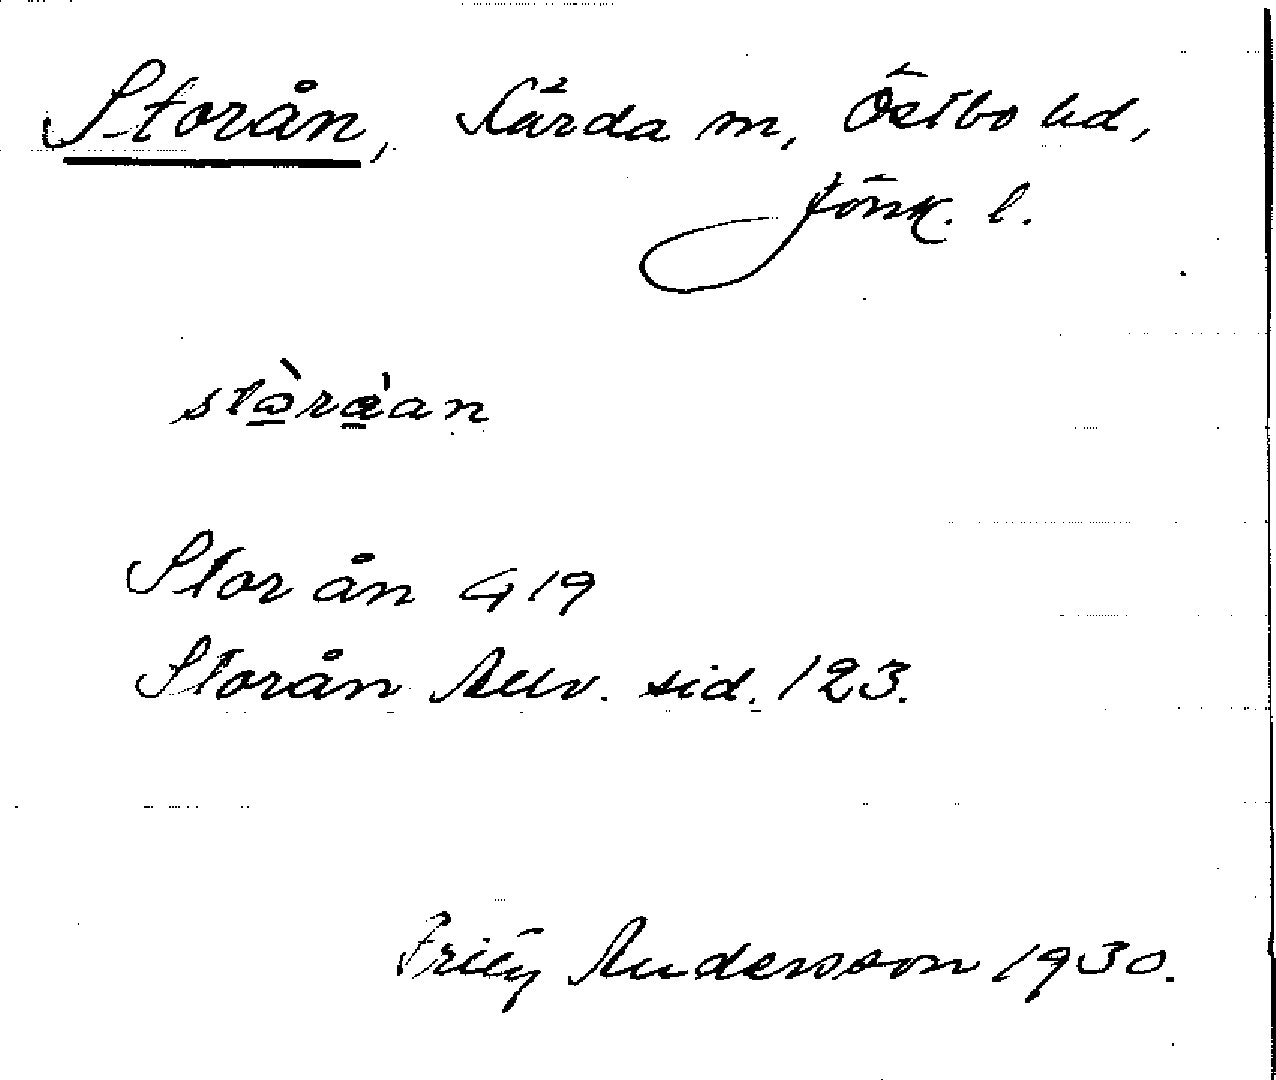 Storån, Kärda m, Östbo hd,
Jönk. l.
stòrá̀an
Stor ån G 19
Storån Allv. sid. 123.
Fritz Andersson 1930.